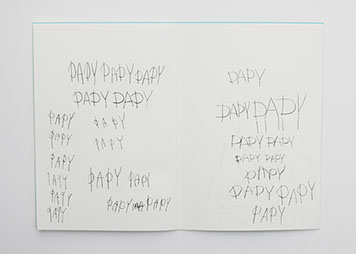 PAPY PAPY PAPY
PAPY PAPY
PAPY
PAPY
PAPY
PAPY
PAPY
PAPY
PAPY
PAPY
PAPY
PAPY
PAPY PAPY
PAPY
PAPY PAPY
PAPY PAPY
PAPY PAPY
PAPY
PAPY PAPY
PAPY